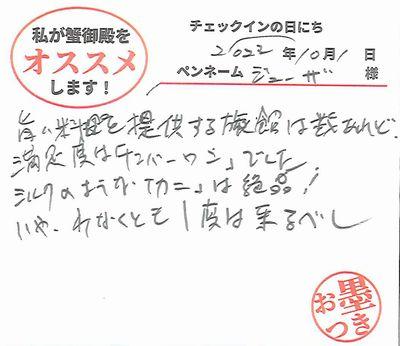 私が蟹御殿を
オススメ
します！
チェックインの日にち
2022年10月1日
ペンネーム ジューザ 様
旨い料理を提供する旅館は数あれど、
満足度はナンバーワン」でした
シルクのような「カニ」は絶品！
いや、少なくとも1度は来るべし
お墨つき